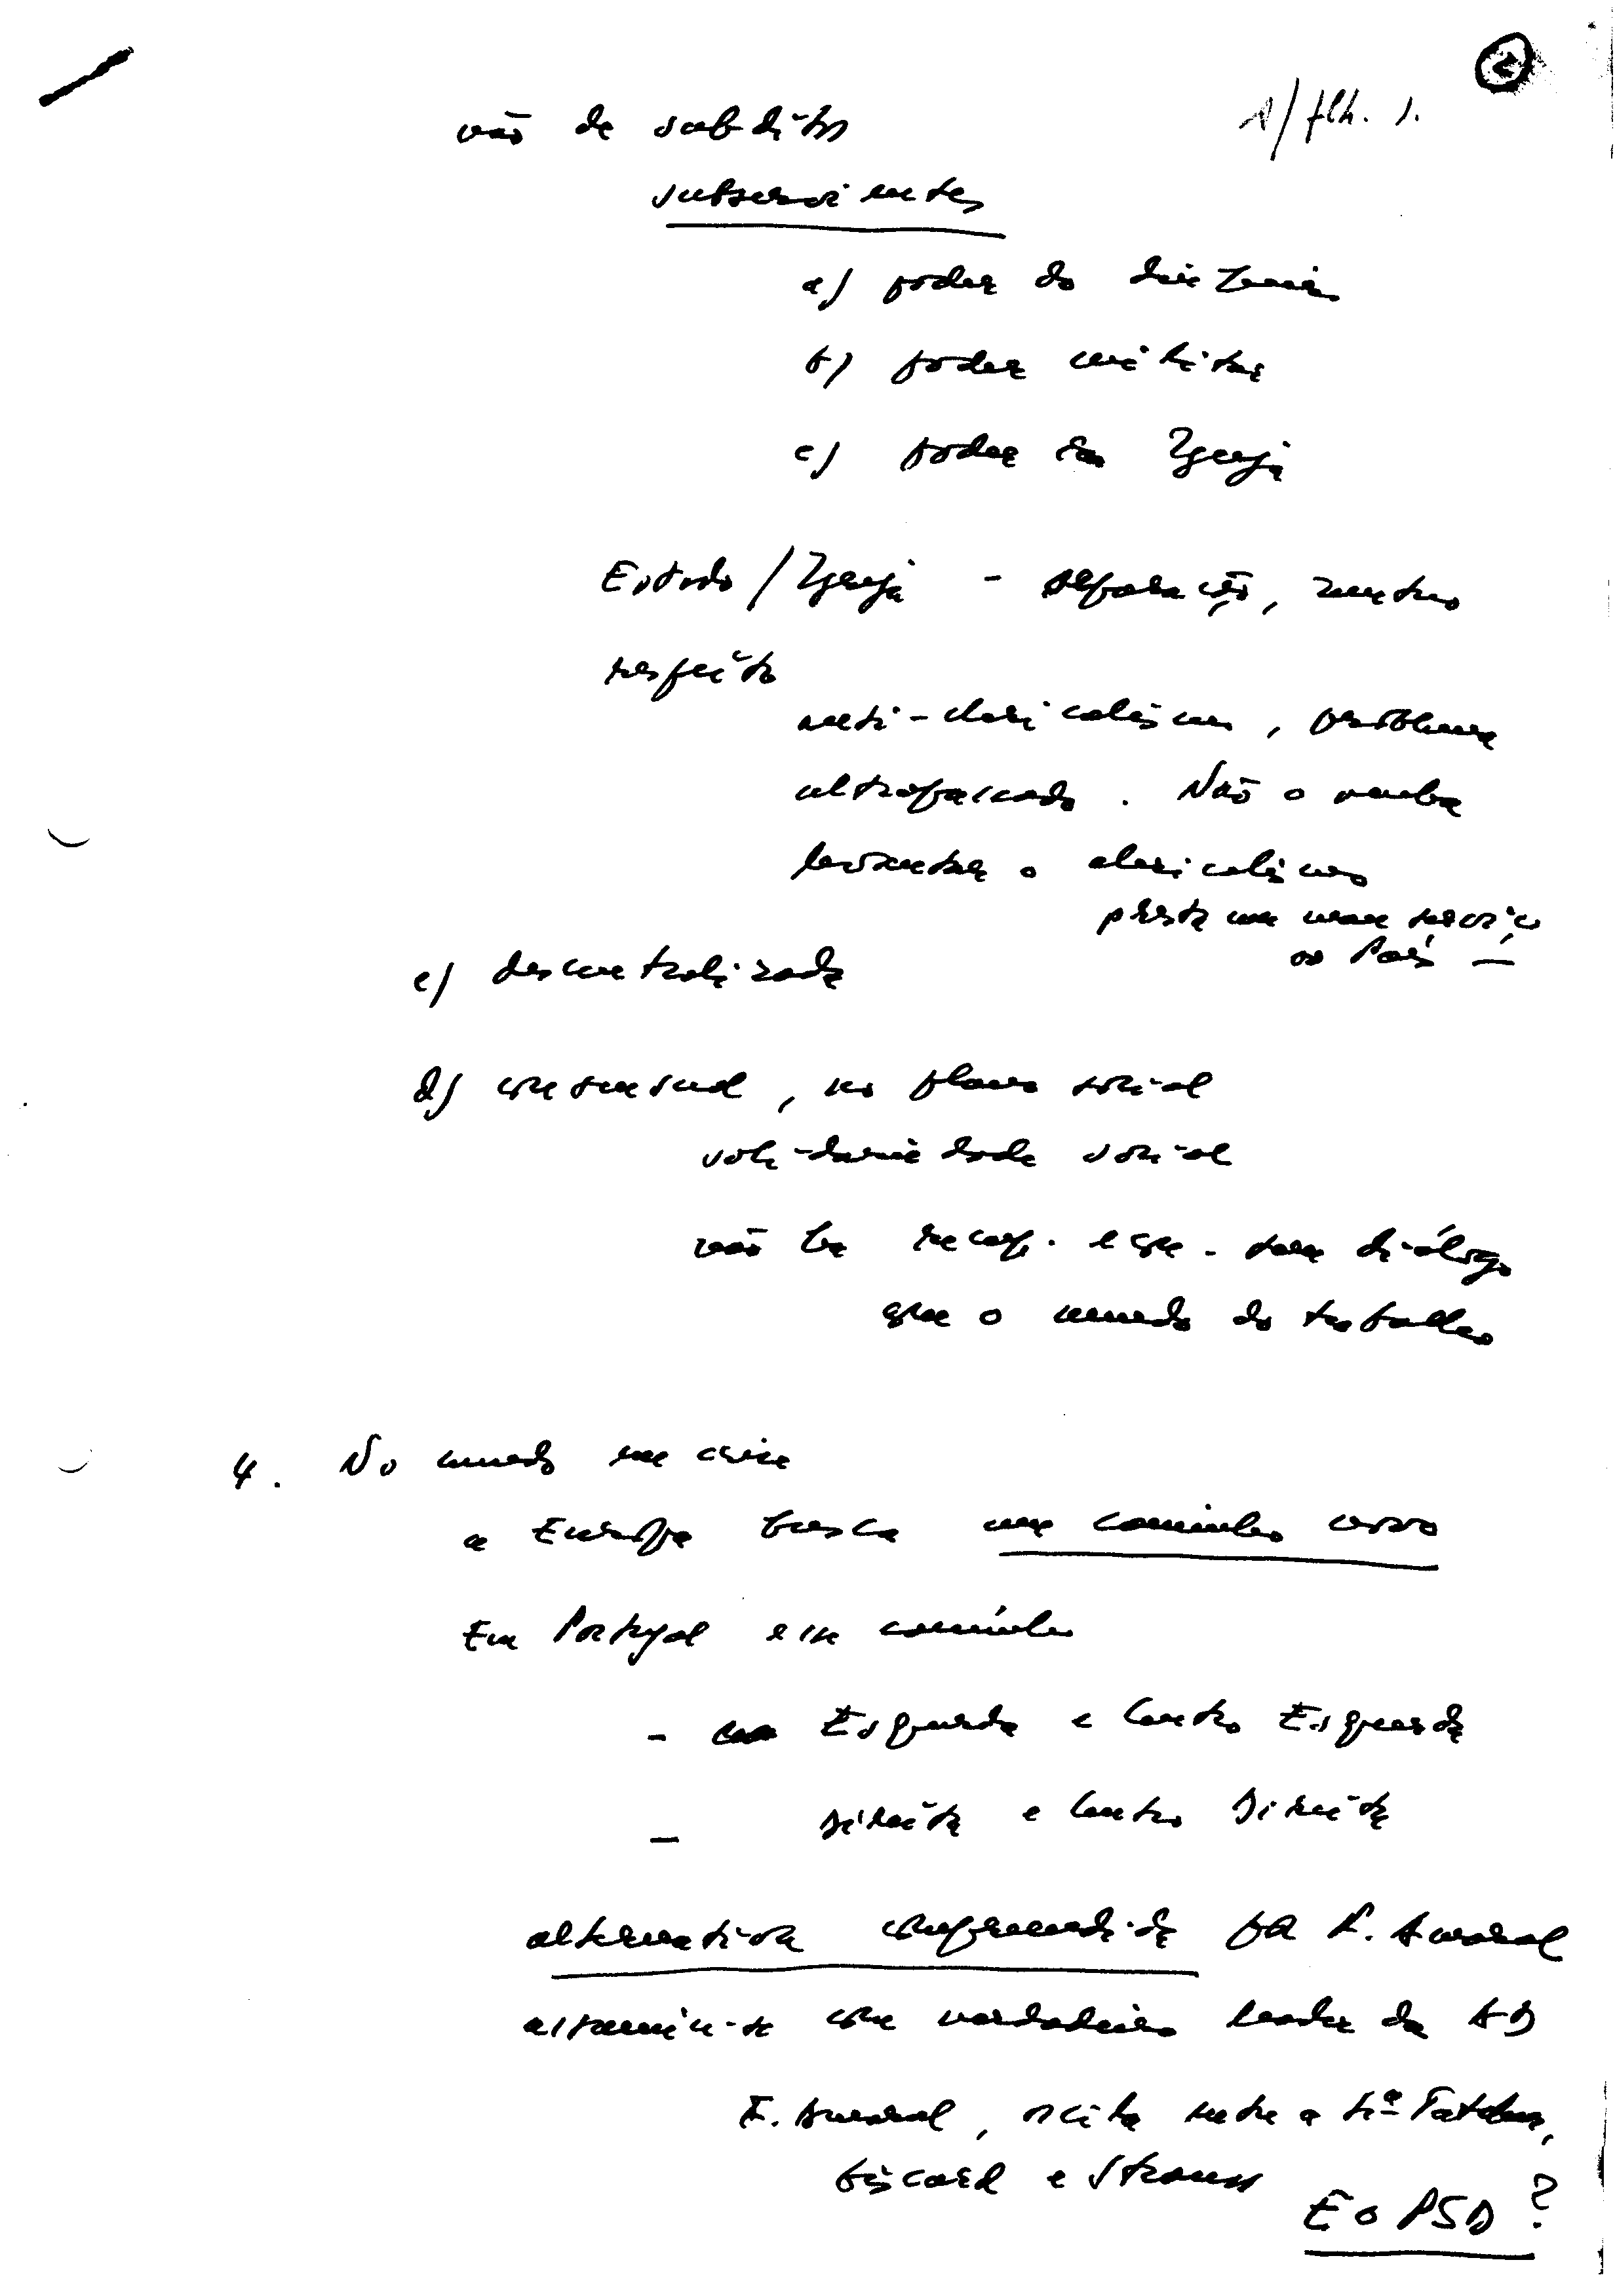 2
1/flh. 1.
não de subditos
subservientes
a) poder do dinheiro
b) poder militar
c) poder da Igreja
Estado / Igreja - separação, mútuo
respeito
anti-clericalismo, problema
ultrapassado. Não o venha
levantar o clericalismo
prestem esse serviço
ao País —
c) descentralizada
d) consensual, no plano social
solidariedade social
não há recup. econ. sem diálogo
com o mundo do trabalho
4. No mundo em crise
a Europa busca um caminho novo
Em Portugal esse caminho
- Esquerda e Centro Esquerda
- Direita e Centro Direita
alternativa compreendida por F. Amaral
assumiu-se como verdadeiro leader da AD
F. Amaral, oscila entre a Sr.ª Tatcher,
Giscard e Strauss
E o PSD ?